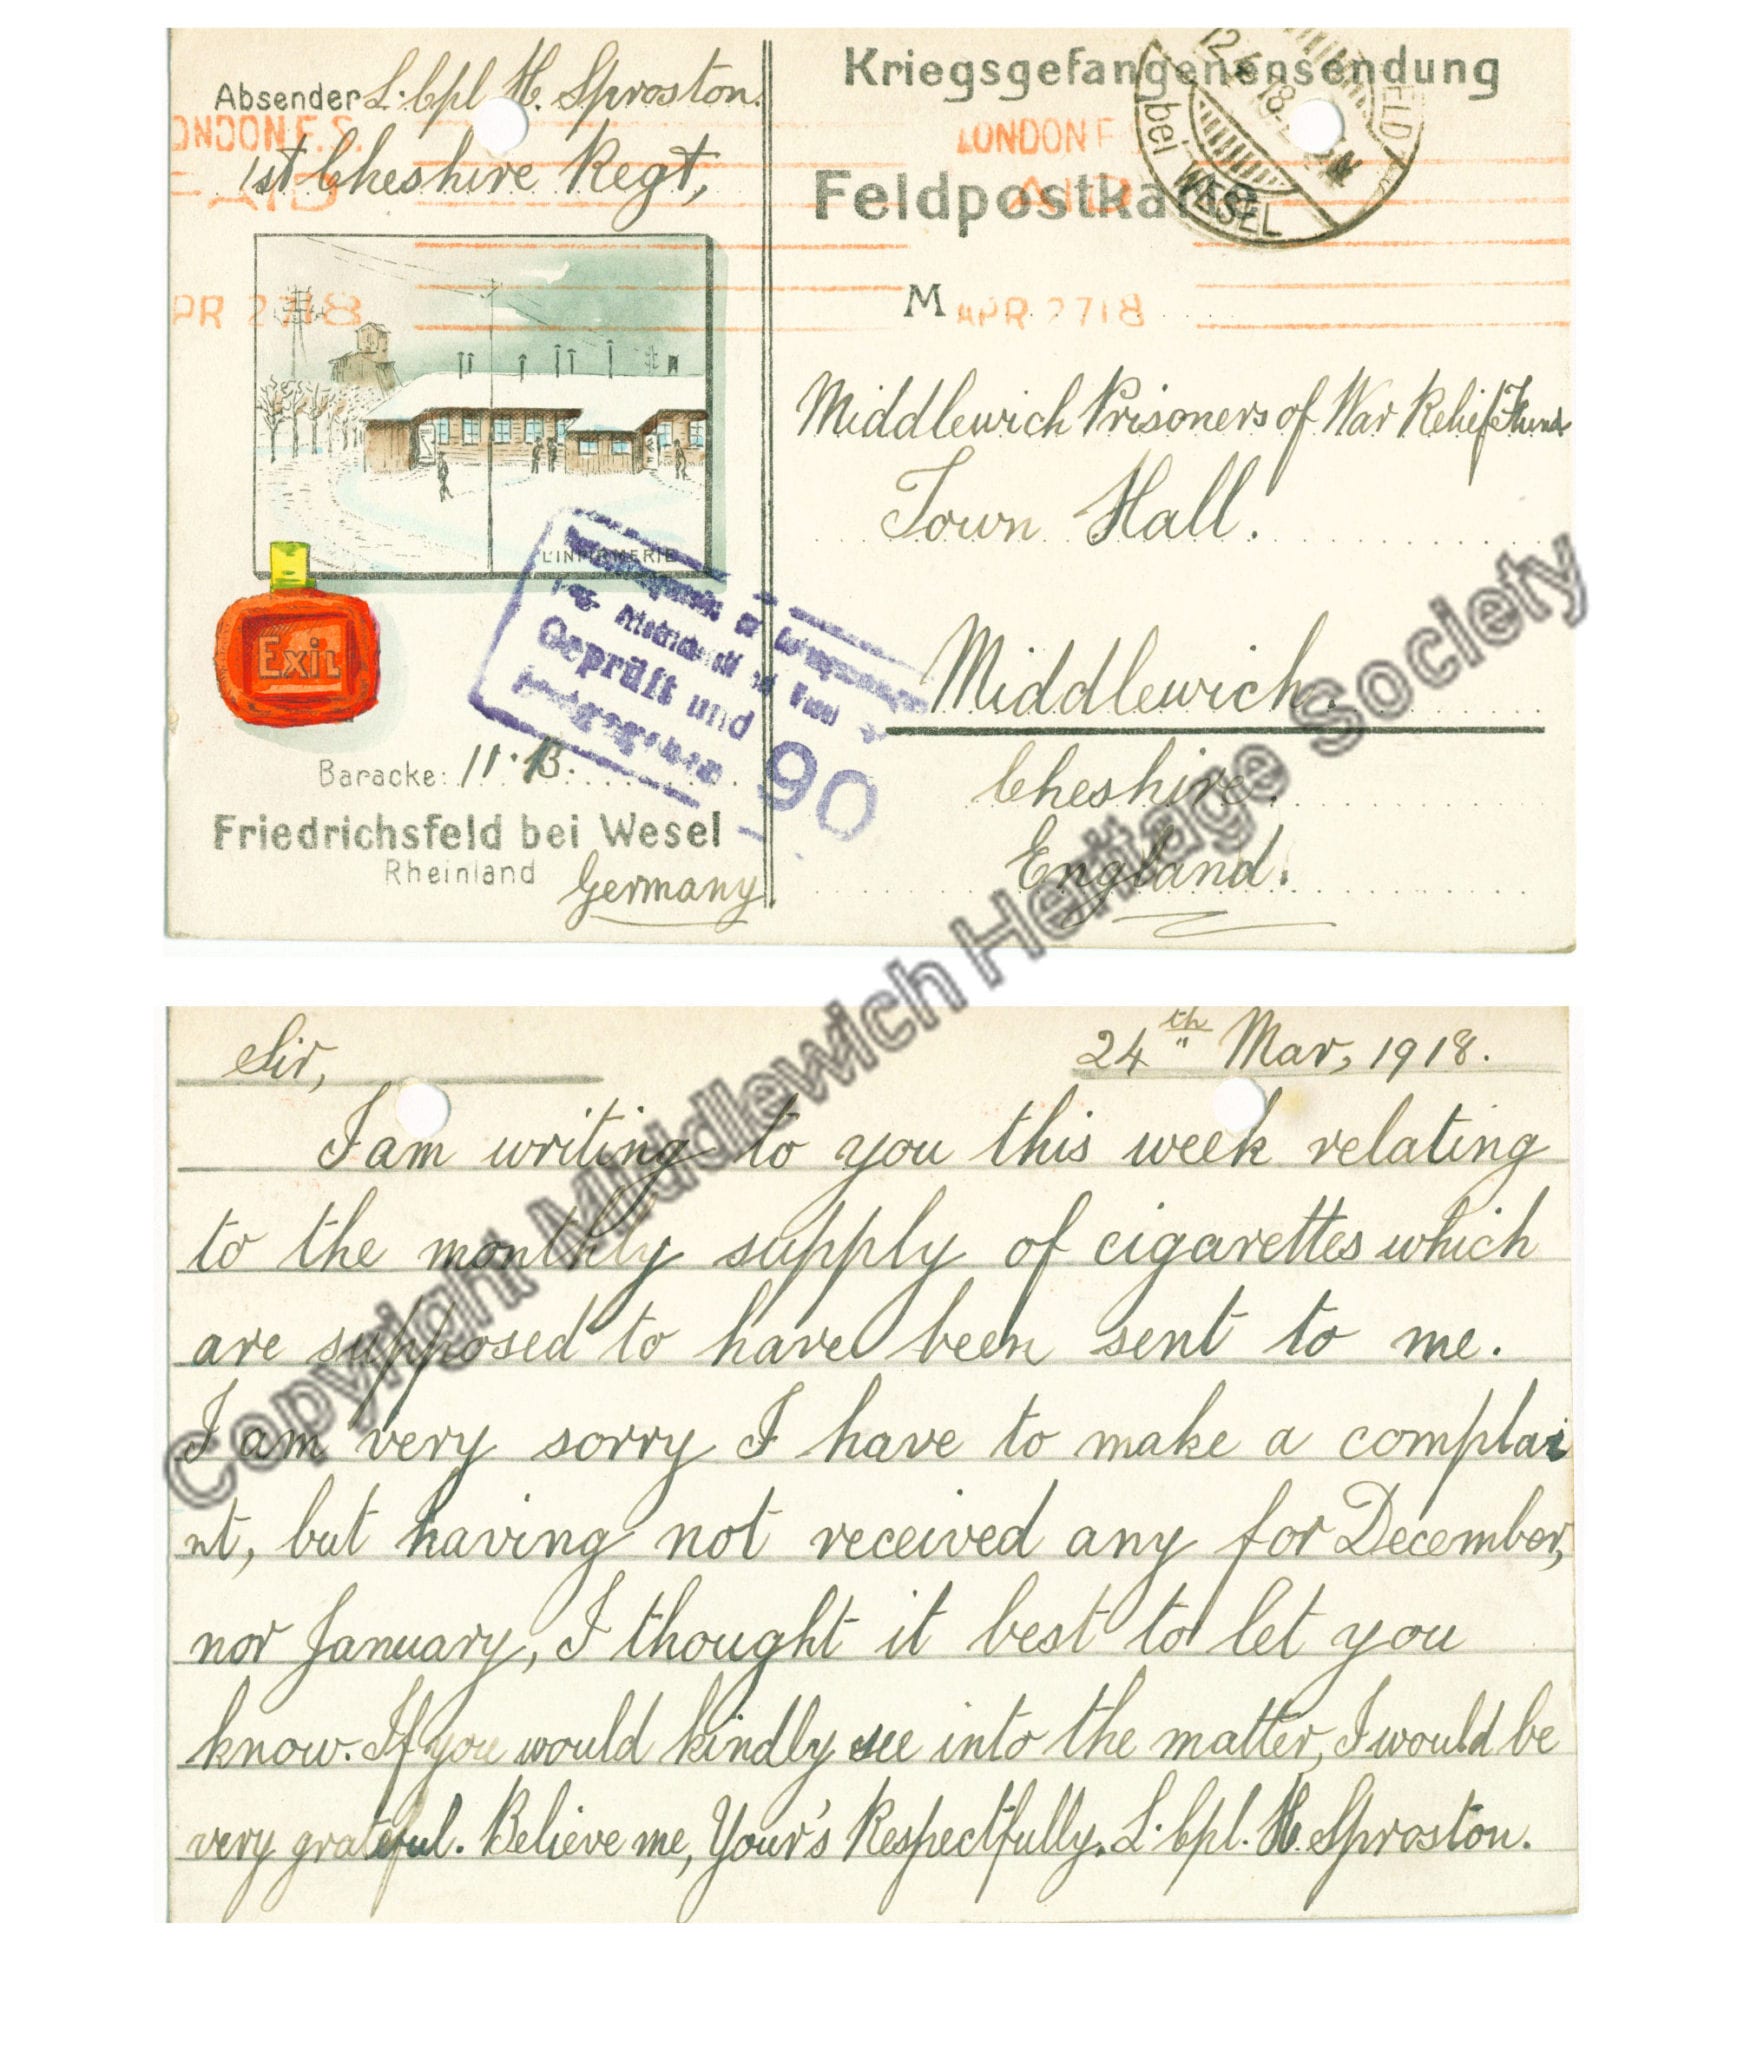 Absender L. Cpl H. Sproston.
1st Cheshire Regt,
L'INFIRMERIE
EXIL
Baracke: 11.B.
Friedrichsfeld bei Wesel
Rheinland Germany
Geprüft und
90
Kriegsgefangenensendung
Feldpostkarte
bei WESEL
LONDON F.S.
PAID
APR 27 18
LONDON F
AID
APR 27 18
M
Middlewich Prisoners of War Relief Fund
Town Hall.
Middlewich.
Cheshire.
England.
Sir, 24th Mar, 1918.
I am writing to you this week relating
to the monthly supply of cigarettes which
are supposed to have been sent to me.
I am very sorry I have to make a complai
nt, but having not received any for December,
nor January, I thought it best to let you
know. If you would kindly see into the matter, I would be
very grateful. Believe me, Your's Respectfully. L. Cpl. H. Sproston.
Copyright Middlewich Heritage Society